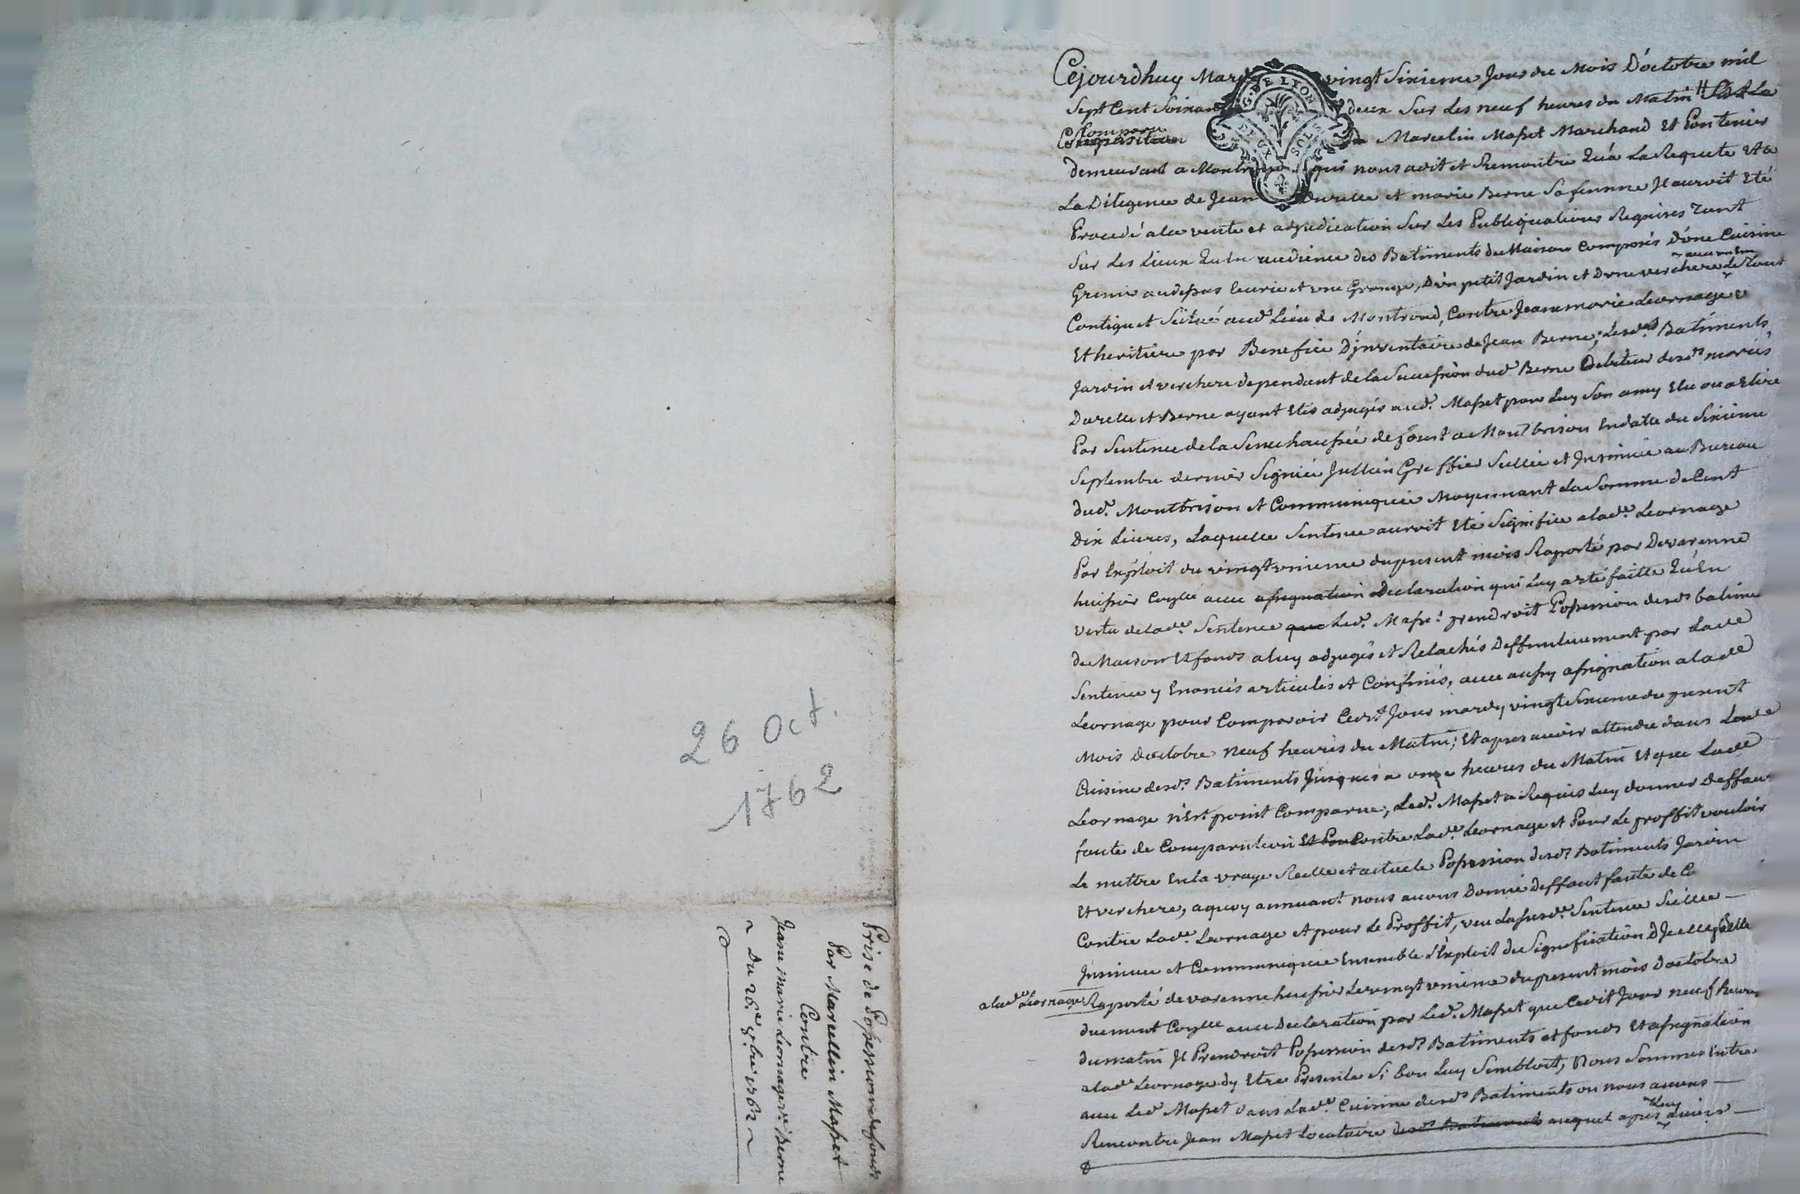 26 Oct.
1762
Prise de possession de fonds
Par Marcellin Masset
Contre
Jeanne Marie Leornage ve Berne
Du 26e 8bre 1762
Cejourdhuy Mardy vingt Sixieme Jour du Mois D'octobre mil
Sept Cent Soixante deux Sur Les neuf heures du Matin
Comparu Marcelin Masset Marchand Et Pontenier
demeurant a Montrond qui nous a dit et Remontré Qu'a La Requete Et a
La Diligence de Jean Durelle et marie Berne Sa femme Il auroit Eté
Procedé a la vente et adjudication Sur Les Publiquations Requises Tant
Sur Les Lieux Qu'En audience des Batiments de Maison Composés D'une Cuisine
Grenier au dessus Ecurie et une Grange, D'un petit Jardin et D'une verchere Le Tout
Contigu et Scitué aud. Lieu de Montrond, Contre Jeanne marie Leornage ve
Et heritiere par Benefice D'inventaire de Jean Berne, Lesds Batiments
Jardin et verchere dependant de la Succession dud. Berne Debiteur desds mariés
Durelle et Berne ayant Etés adjugés aud. Masset pour Luy Son amy Elu ou a Elire
Par Sentence de la Senechaussée de forest a Montbrison En datte du Sixieme
Septembre dernier Signée Jullien Greffier Sellée et Insinuée au Bureau
dud. Montbrison et Communiquée Moyennant La Somme de Cent
Dix Livres, Laquelle Sentence auroit Eté Signifiée a lade. Leornage
Par Exploit du vingt unieme du present mois Raporté par Devarenne
huissier avec assignation Declaration qui Luy a eté faitte Qu'En
vertu de lade. Sentence que Led. Masset prendroit Possession desds batimens
de Maison Et fonds a luy adjugés et Relachés Deffinitivement par Lade
Sentence y Enoncés articulés et Confinés, avec aussy assignation a lade
Leornage pour Comparoir Cedt Jour mardy vingt Sixieme du present
Mois d'octobre neuf heures du Matin, Et apres avoir attendu dans Lade
Cuisine desd. Batiments Jusques a onze heures du Matin Et que Lade
Leornage n'Est point Comparue, Led. Masset a Requis Luy donner Deffaut
faute de Comparution Et Pou Contre Lade. Leornage et Pour Le proffit vouloir
Le mettre En la vraye Reelle et actuelle Possession desd. Batiments Jardin
Et verchere, a quoy annuant nous avons Donné deffaut faute de Co
Contre Lade. Leornage et pour Le Proffit, veu La susde. Sentence Sellée
Insinuée et Communiquée Ensemble L'Exploit de Signification D'Icelle
a lade Leornage Raporté devarenne huissier Le vingt unieme du present mois D'octobre
duement avec Declaration par Led. Masset que Cedit Jour neuf heures
du matin Il Prendroit Possession desds Batiments et fonds Et assignation
a lade Leornage dy Etre Presente Si bon Luy Sembloit, Nous Sommes Entré
avec Led Masset dans Lade. Cuisine desds Batiments ou nous avons
Rencontré Jean Masset Locataire desds Batiments auquel apres Luy avoir